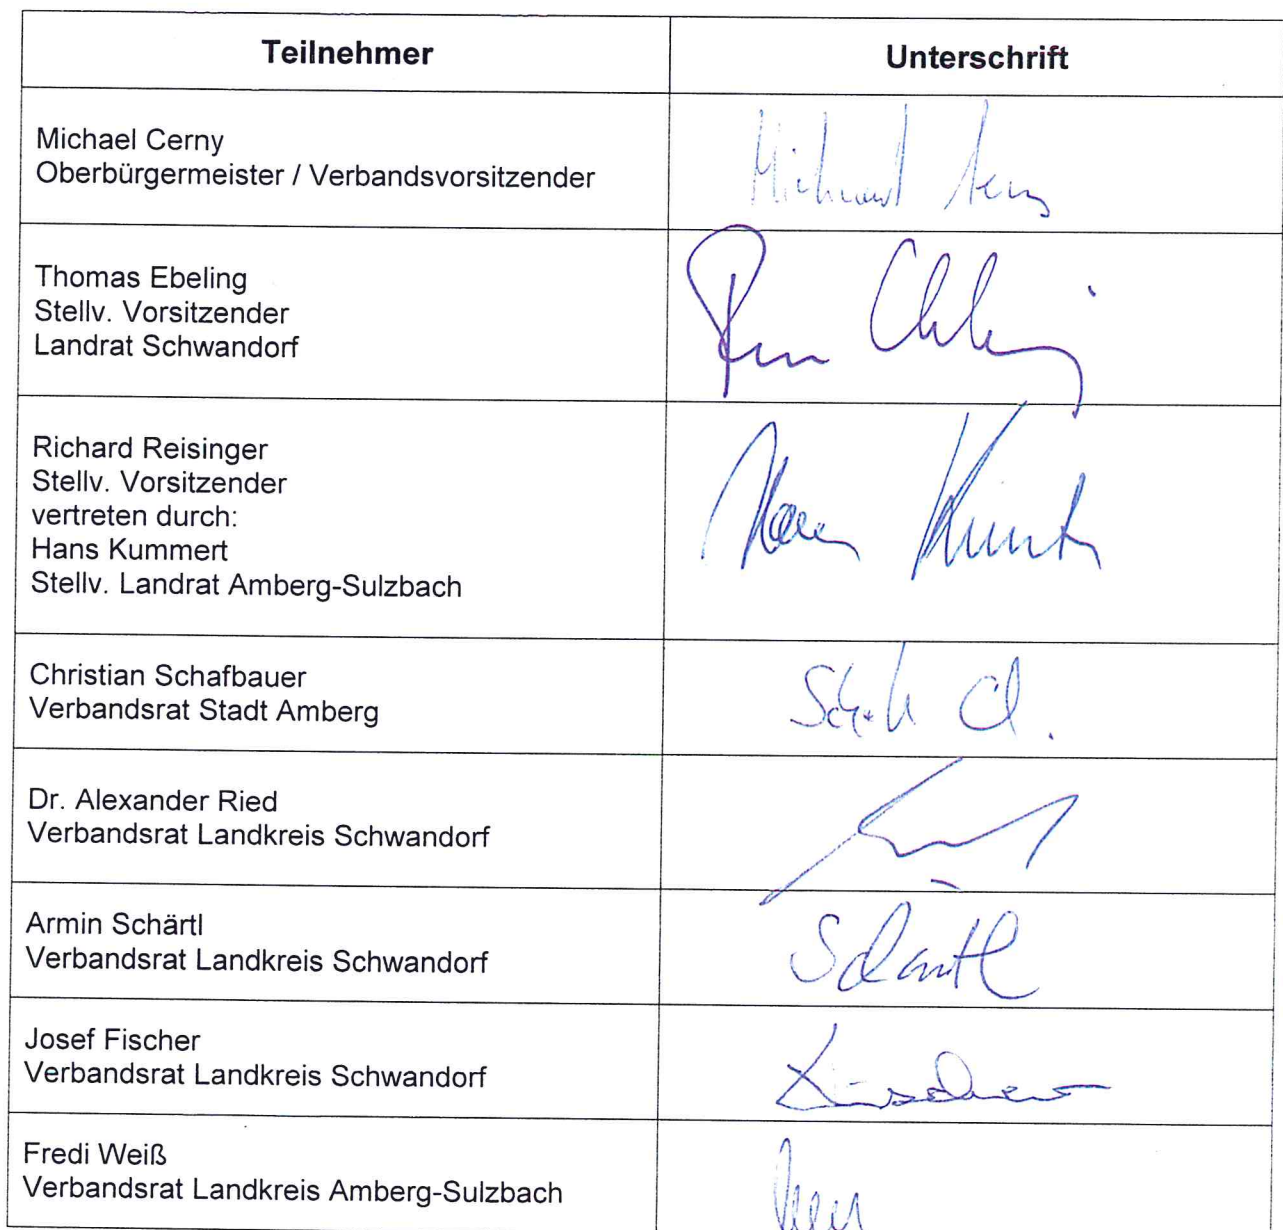 Teilnehmer
Unterschrift
Michael Cerny
Oberbürgermeister / Verbandsvorsitzender
Thomas Ebeling
Stellv. Vorsitzender
Landrat Schwandorf
Richard Reisinger
Stellv. Vorsitzender
vertreten durch:
Hans Kummert
Stellv. Landrat Amberg-Sulzbach
Christian Schafbauer
Verbandsrat Stadt Amberg
Dr. Alexander Ried
Verbandsrat Landkreis Schwandorf
Armin Schärtl
Verbandsrat Landkreis Schwandorf
Josef Fischer
Verbandsrat Landkreis Schwandorf
Fredi Weiß
Verbandsrat Landkreis Amberg-Sulzbach